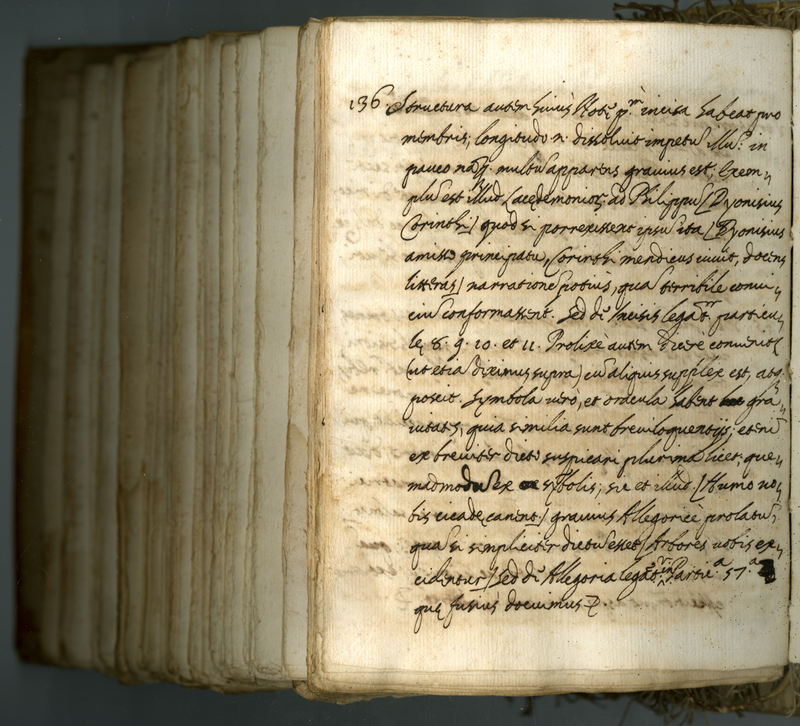 136. Structura autem huius Notę p.m incisa habeat pro
membris; longitudo n. dissoluit impetũ illũ: in
pauco multũ apparens grauius est; Exem¬
plũ est illud Lacedemonior. ad Philippũ (Dyonisius
Corinthi) quod si porrexissent ipsũ ita (Dyonisius
amisso principatu, Corinthi mendicus uiuit, docens
litteras) narrationẽ potius, quã terribile conui¬
ciũ conformassent. Sed dẽ Incisis legat.r particu¬
lę 8. 9. 10. et 11. Prolixè autem dicere conuenit
(ut etiã diximus supra) cũ aliquis supplex est, atq.
poscit. Symbola uerò, et oracula habent gra¬
uitatẽ, quia similia sunt breuiloquentijs; etenĩ
ex breuiter dicto suspicari plurima licet; que¬
madmodũ ex sỹbolis; sic et illud (Humo uo¬
bis cicadę canent) grauius Allegoricè prolatũ,
quã si simpliciter dictũ esset (Arbores uobis ex¬
cidentur) sed dẽ Allegoria legat.r in Partic.a 57.a
quę fusius docuimus